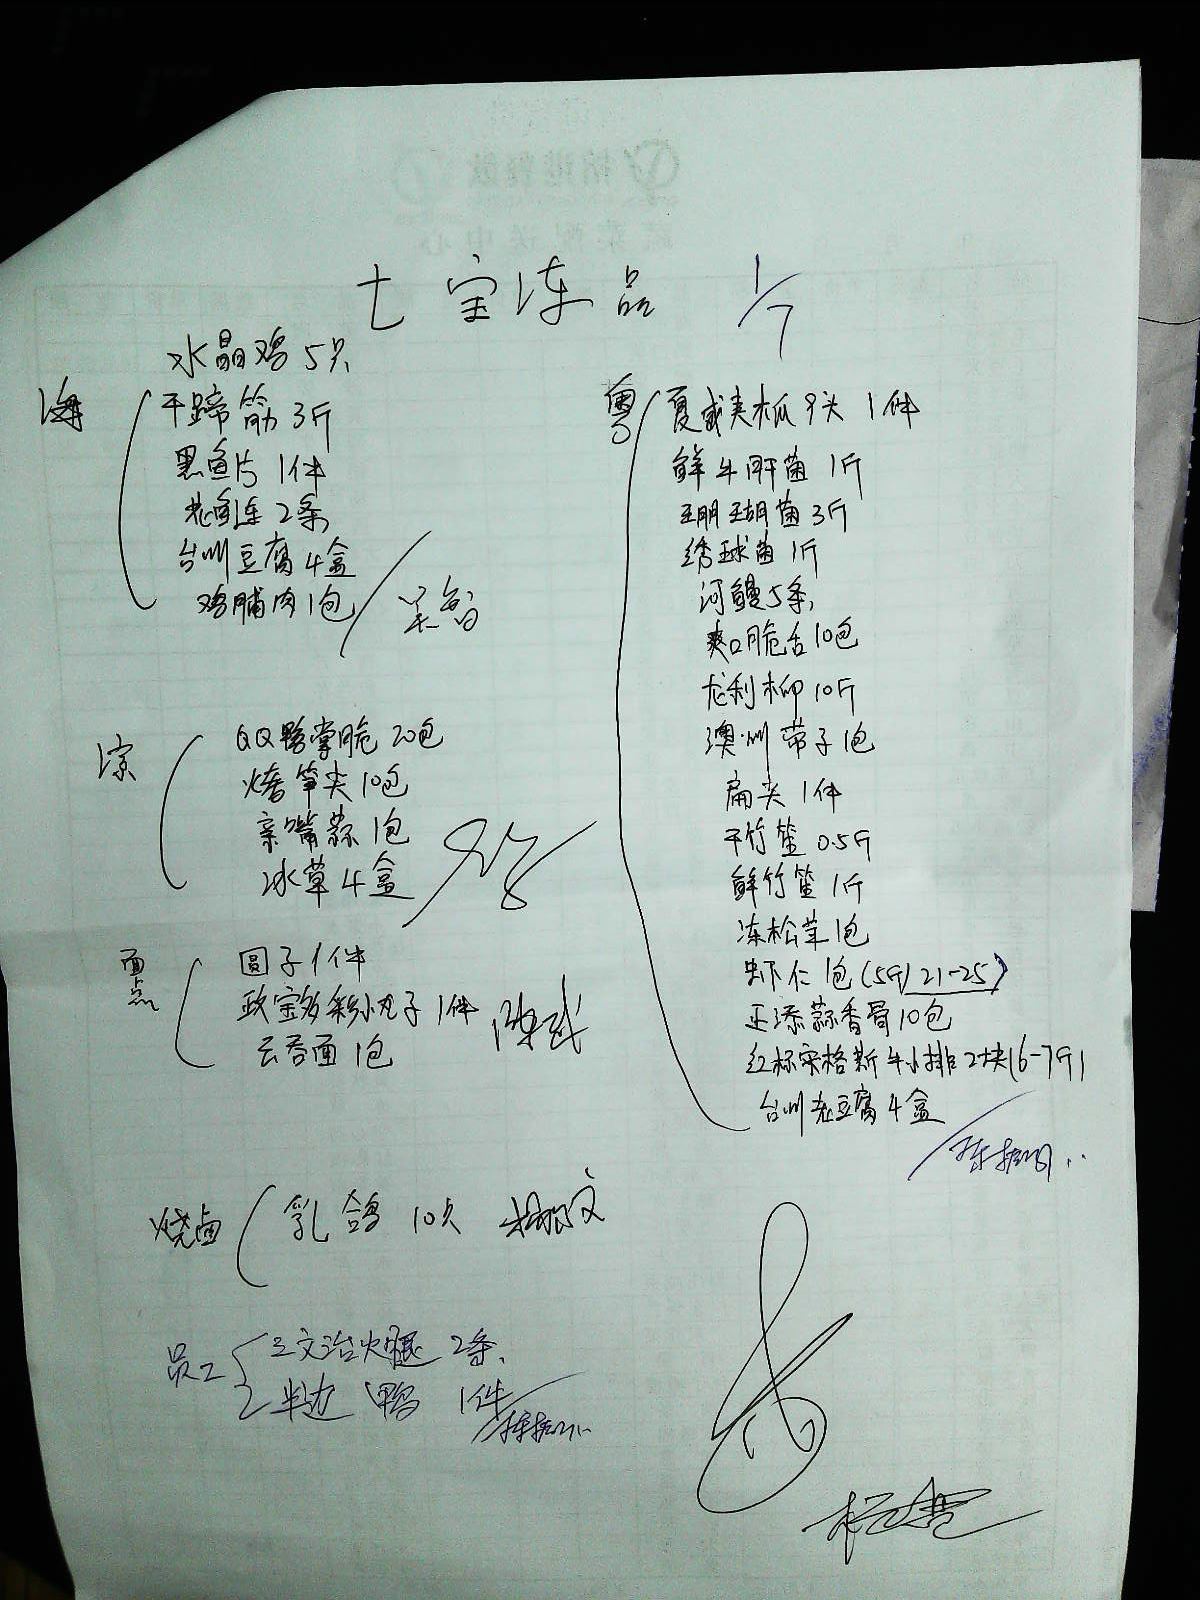 七宝冻品 1/7
水晶鸡 5只
海
干蹄筋 3斤
黑鱼片 1件
2条
台州豆腐 4盒
鸡脯肉 1包
凉
QQ鸭掌脆 20包
烤笋尖 10包
亲嘴蒜 1包
冰草 4盒
面点
圆子 1件
小丸子 1件
云吞面 1包
烧卤
乳鸽 10只
员工
三文治火腿 2条
半边鸭 1件
粤
夏威夷木瓜 9头 1件
鲜牛肝菌 1斤
珊瑚菌 3斤
绣球菌 1斤
河鳗 5条
爽口脆舌 10包
龙利柳 10斤
澳州带子 1包
扁尖 1件
干竹笙 0.5斤
鲜竹笙 1斤
冻松茸 1包
虾仁 1包 (5斤) 21-25
正添蒜香骨 10包
红标安格斯牛小排 2块 (6-7斤)
台州老豆腐 4盒